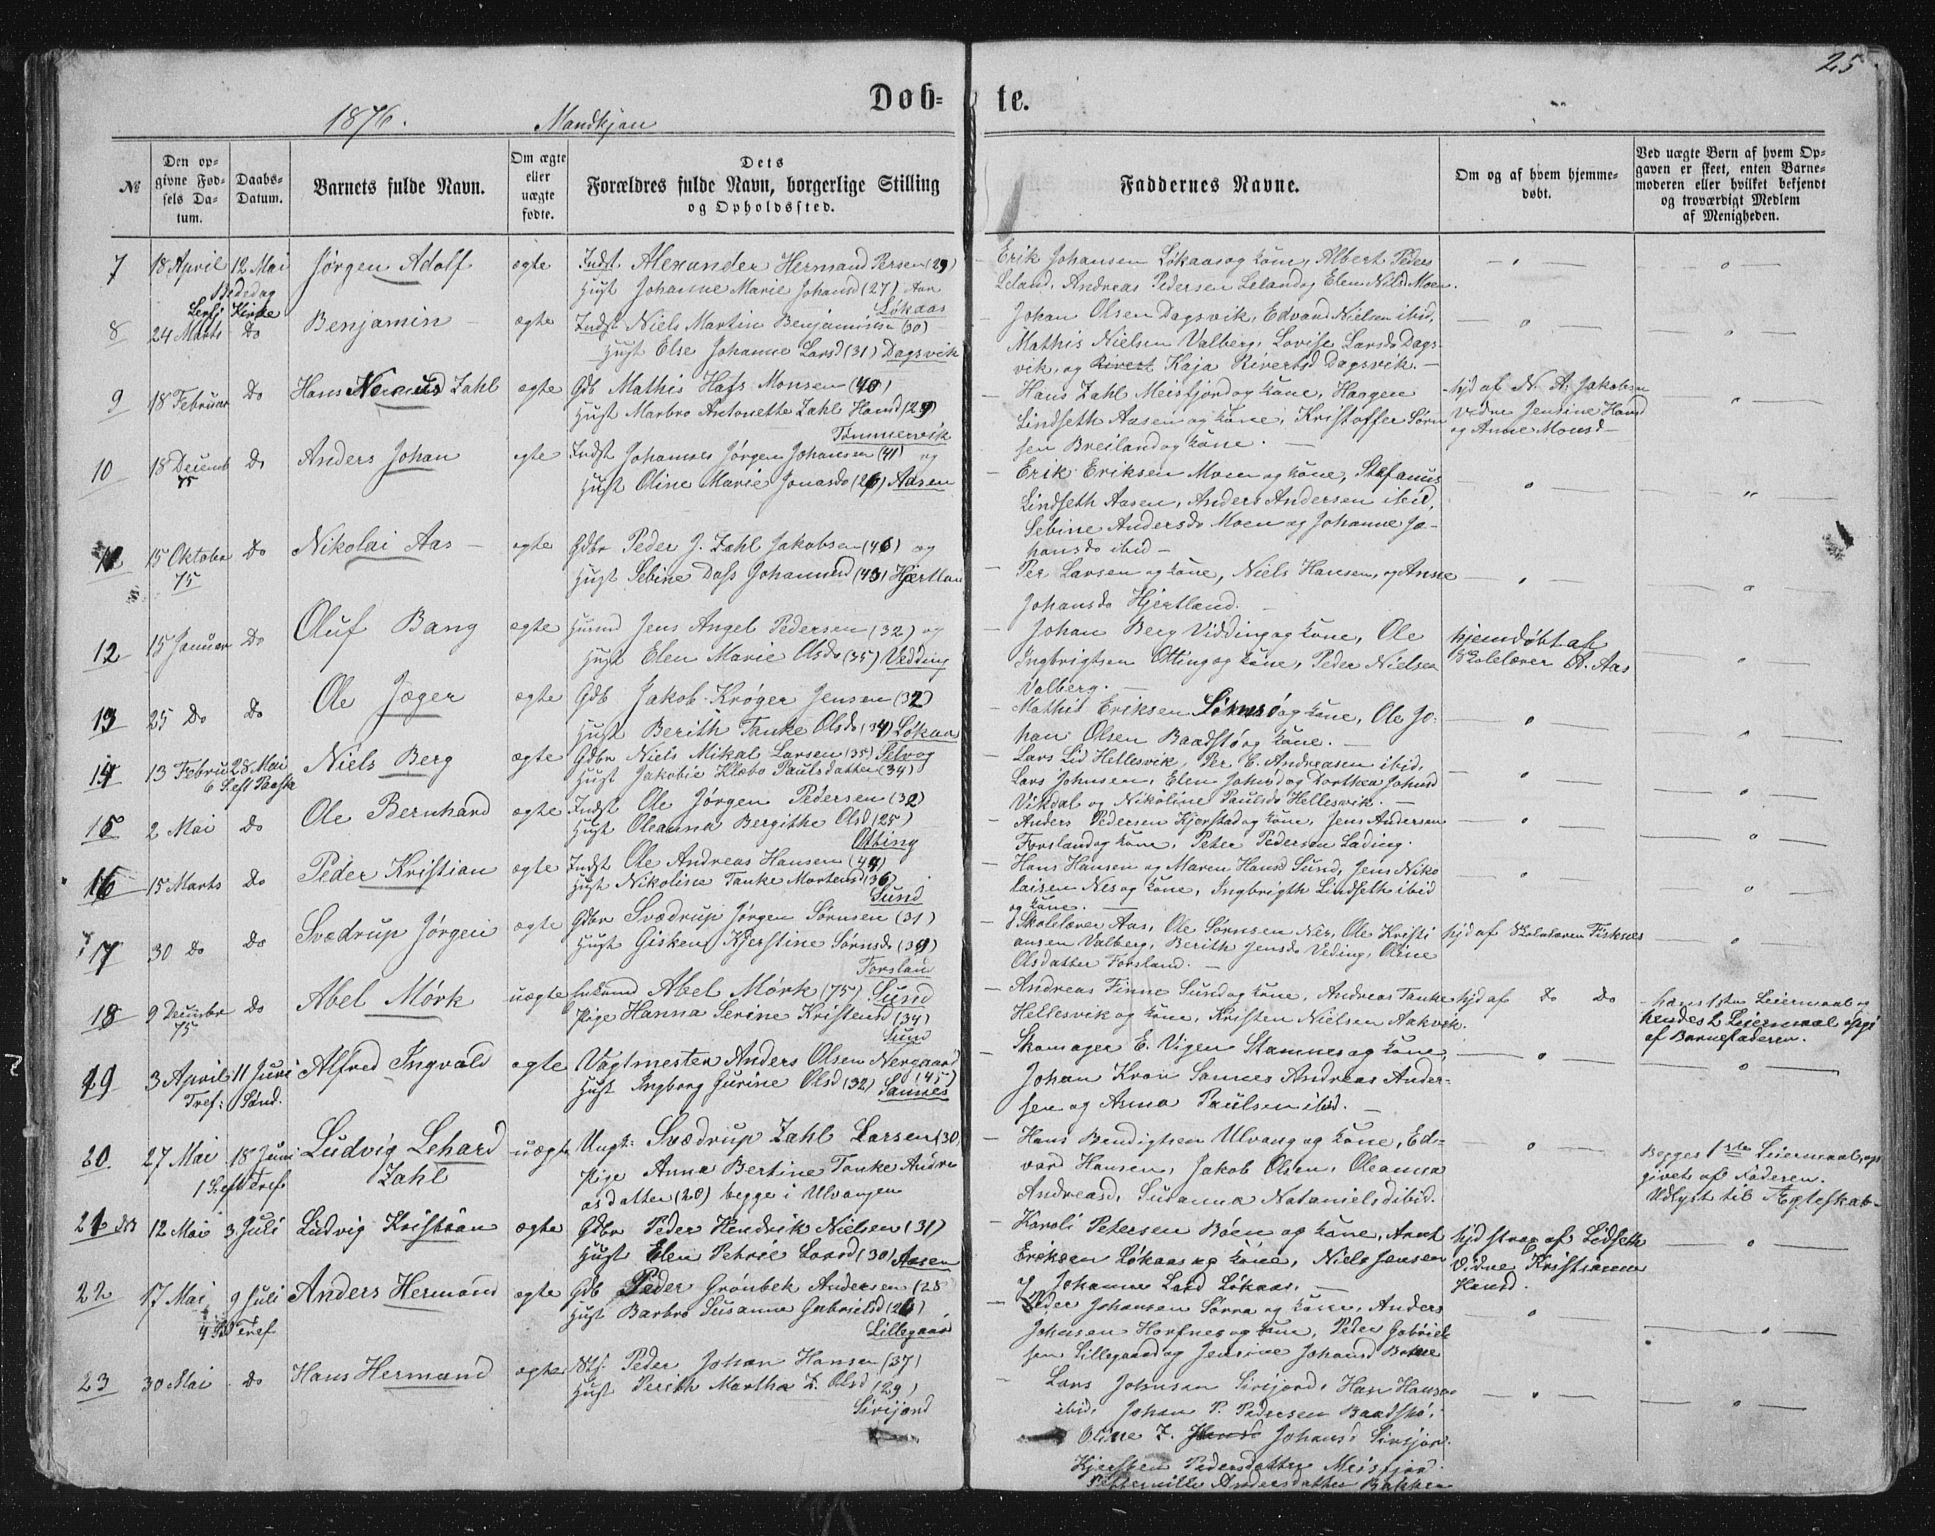 25
Døb- te.
1876. Mandkjøn
№
Den opgivne Fødsels Datum.
Daabs-Datum.
Barnets fulde Navn.
Om ægte eller uægte fødte.
Dets Forældres fulde Navn, borgerlige Stilling og Opholdssted.
Faddernes Navne.
Om og af hvem hjemmedøbt.
Ved uægte Børn af hvem Opgaven er skeet, enten Barnemoderen eller hvilket bekjendt og troværdigt Medlem af Menigheden.
7 18 April 12 Mai Jørgen Adolf ægte Indst Alexander Hermand Persen (29)
Bededag Hust Johanne Marie Johansd (27) Løkaas
Erik Johansen Løkaas og Kone, Albert Peders
Leland, Andreas Pedersen Leland og Elen Nilsd Moen.
8 24 Marts do Benjamin ægte Indst Niels Martin Benjaminsen (30)
Hust Else Johanne Larsd (31) Dagsvik
Johan Olsen Dagsvik, Edvard Nielsen ibid,
Mathis Nielsen Valberg, Lovise Larsd Dags-
vik, og Kaja Rivertsd Dagsvik.
9 18 Februar do Hans Zahl ægte Gdb Mathis Hass Monsen (40)
Hust Marbro Antonette Zahl Hansd (29)
Tømmervik
Hans Zahl Meisfjord og Kone, Haagen
Lindseth Aasen og Kone, Kristoffer Søren
sen Breiland og Kone.
hjd af N. A. Jakobsen
Vidne Jensine Hansd
og Anne Monsd
10 18 Decemb 75 do Anders Johan ægte Indst Johannes Jørgen Johansen (41) og
Hust Oline Marie Jonasd (26) Aasen
Erik Eriksen Moen og Kone, Stefanus
Lindseth Aasen, Anders Andersen ibid,
Sebine Andersd Moen og Johanne Jo-
hansd ibid
11 15 Oktober 75 do Nikolai Aas ægte Gdbr Peder J. Zahl Jakobsen (46) og
Hust Sebine Dass Johannesd (43) Hjertlan
Per Larsen og Kone, Niels Hansen, og Anne
Johansd Hjertland.
12 15 Januar do Oluf Bang ægte Husmd Jens Angel Pedersen (32) og
Hust Elen Marie Olsd (35) Vedding
Johan Berg Vidding og Kone, Ole
Ingbrigtsen Otting og Kone, Peder Nielsen
Valberg.
hjemdøbt af
Skolelærer A. Aas
13 25 do do Ole Jæger ægte Gdb Jakob Krøger Jensen (32)
Hust Berith Tanke Olsd (34) Løkaas
Mathis Eriksen og Kone, Ole Jo-
han Olsen Baadstø og Kone.
14 13 Febru 28 Mai Niels Berg ægte Gdbr Niels Mikal Larsen (35) Selvog
6 S. eft Paaske Hust Jakobie Klæbo Paulsdatter (34)
Lars Lid Hellesvik, Per E. Andreasen ibid,
Lars Johnsen, Elen Johnsd og Dorthea Johnsd
Vikdal og Nikoline Paulsd Hellesvik.
15 2 Mai do Ole Bernhard ægte Indst Ole Jørgen Pedersen (32)
Hust Oleanna Bergithe Olsd (25)
Otting
Anders Pedersen Kjørstad og Kone, Jens Andersen
Forsland og Kone, Peter Pedersen Lading.
16 15 Marts do Peder Kristian ægte Indst Ole Andreas Hansen (44)
Hust Nikoline Tanke Mortensd (36)
Sund
Hans Hansen og Maren Hansd Sund, Jens Niko
laisen Nes og Kone, Ingbrigth Lindseth ibid
og Kone.
17 30 do do Svædrup Jørgen ægte Gdbr Svædrup Jørgen Sørnsen (31)
Hust Gisken Kjerstine Sørnsd (39)
Forslan
Skolelærer Aas, Ole Sørnsen Nes, Ole Kristi
ansen Valberg, Berith Jensd Veding, Oline
Olsdatter Forsland.
hjd af Skolelæren Fisknes
18 9 Decmbr 75 do Abel Mørk uægte Enkemd Abel Mørk (75) Sund
Pige Hanna Serine Kristensd (34)
Sund
Andreas Finne Sund og Kone, Andreas Tanke
Hellesvik og Kone, Kristen Nielsen Aakvik.
hjd af do do
hans 1ste Leiermaal og
hendes 2 Leiermaal opgi
af Barnefaderen.
19 3 April 11 Juni Alfred Ingvald ægte Vagtmester Anders Olsen Nergaard (45)
Tref: Sønd. Hust Ingborg Jurine Olsd (32) Sannes
Skomager E. Vigen Stamnes og Kone,
Johan Kron Sannes Andreas Ander-
sen og Anna Paulsen ibid.
20 27 Mai 18 Juni Ludvig Lehard Zahl uægte Ungk: Svædrup Zahl Larsen (30)
1 S eft Tref Pige Anna Bertine Tanke Andre
asdatter (20) begge i Ulvangen
Hans Bendigtsen Ulvang og Kone, Ed-
vard Hansen, Jakob Olsen, Oleanna
Andreasd, Susanna Natanielsd ibid.
Begges 1ste Leiermaal, op
givet af Faderen.
Udlyst til Ægteskab
21 12 Mai 3 Juli Ludvig Kristian ægte Gdbr Peder Hendrik Nielsen (31)
Hust Elen Petrie Larsd (30) Aasen
Karoli Petersen Bøen og Kone, Arnt
Eriksen Løkaas og Kone, Niels Jensen
Johanna Larsd Løkaas.
hjd strax af Lidseth
Vidne Kristianna
Hansd.
22 17 Mai 9 Juli Anders Hermand ægte Gdb Peder Grønbek Andersen (28
4 S Tref Hust Barbro Susanna Gabrielsd (26)
Lillegaard
Peder Johansen Sørra og Kone, Anders
Johnsen Horfnes og Kone, Peder Gabriel
sen Lillegaard og Jensine Johansd
23 30 Mai do Hans Hermand ægte Peder Johan Hansen (37)
Hust Perith Martha L. Olsd (29)
Sivijord
Lars Johnsen Sivijord, Hans Hansen
ibid, Johan P. Pedersen Baadstø,
Oline Z. Johansd Sivijor
Kjersten Pedersdatter Meisfjord
Andersdatter Bakken